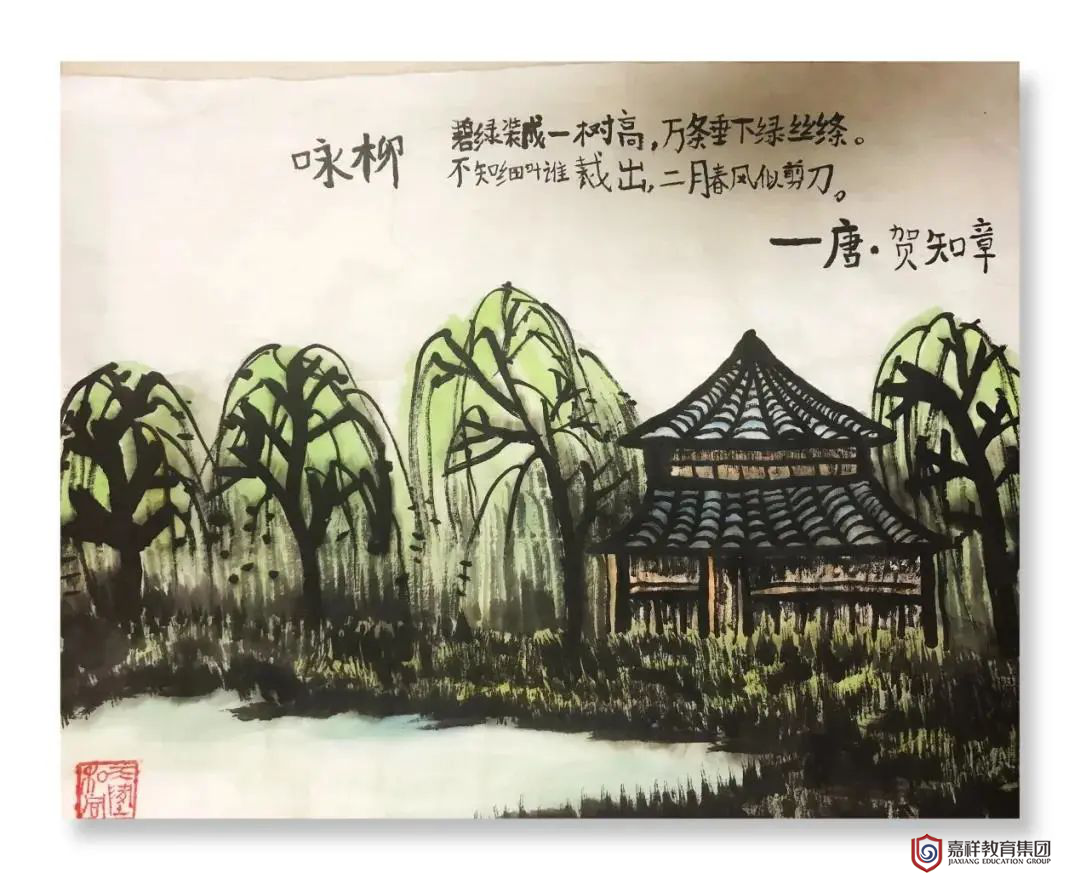 咏柳
碧绿装成一树高,万条垂下绿丝绦。
不知细叶谁裁出,二月春风似剪刀。
—唐·贺知章
嘉祥教育集团
JIAXIANG EDUCATION GROUP